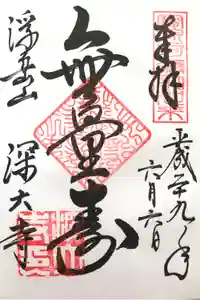 奉拝
平成二十九年
六月六日
無量寿
浮岳山
深大寺